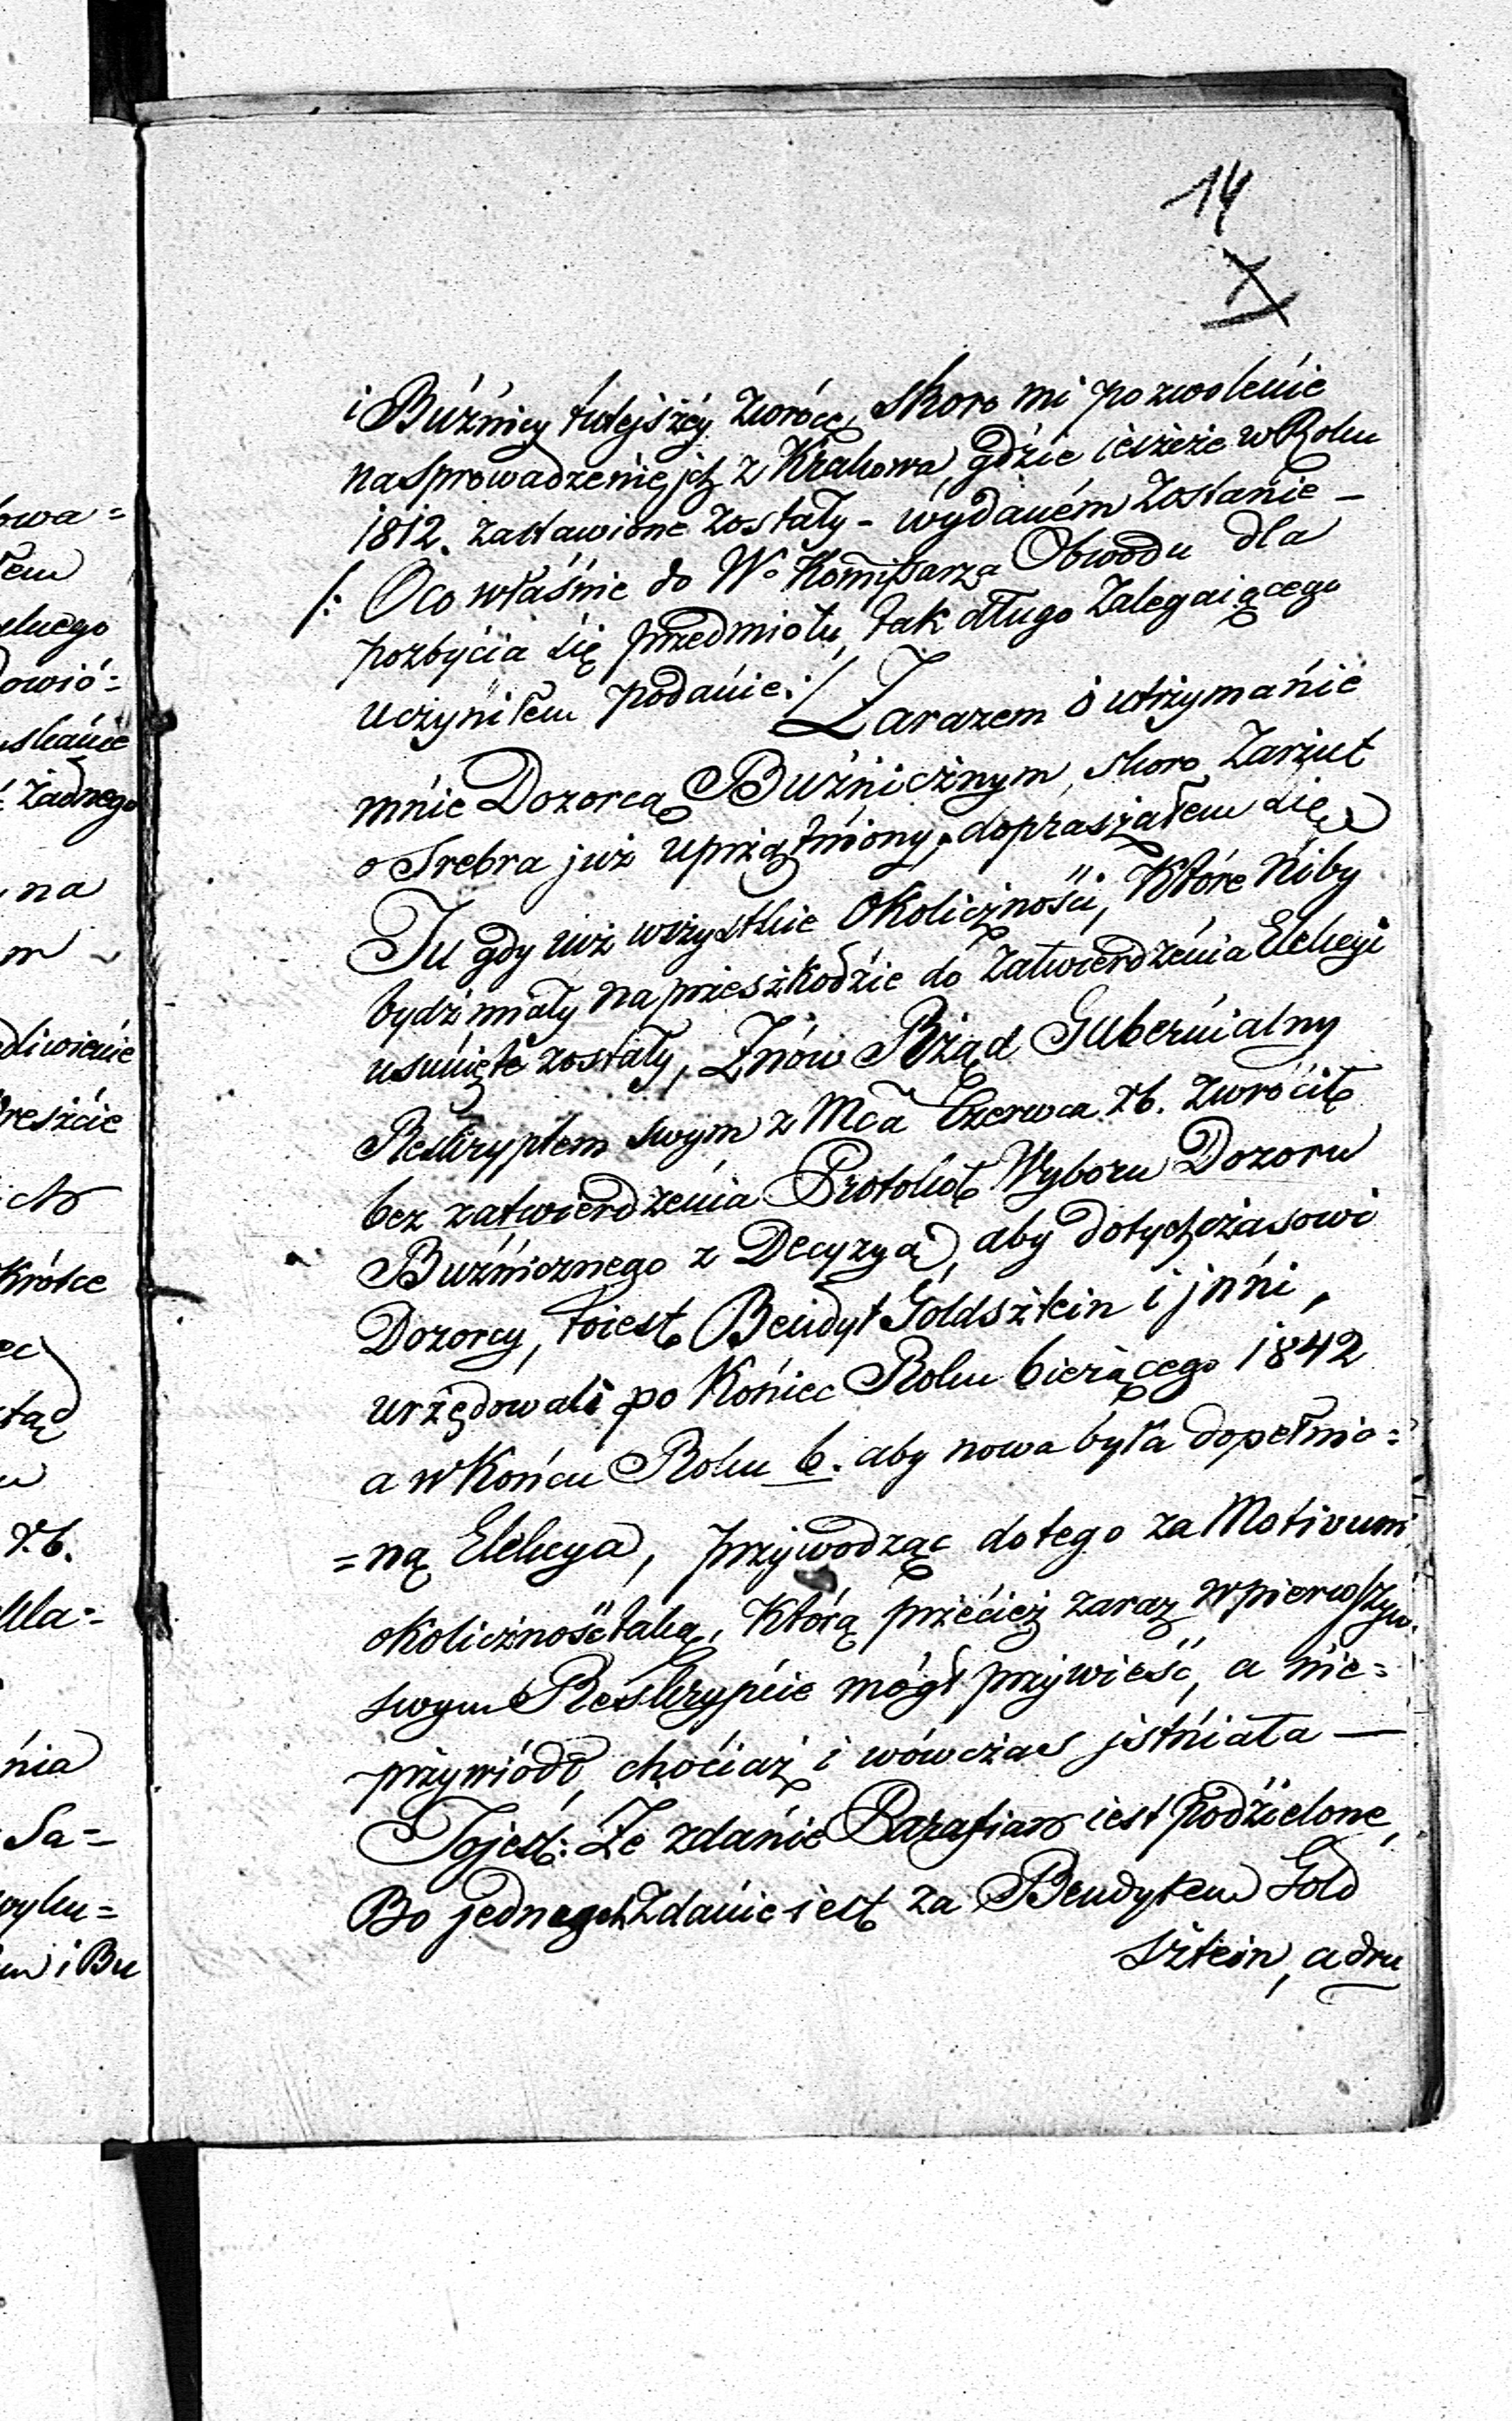 14
X
i Buźnicy tutejszéy zwrócę, skoro mi pozwolenie
na sprowadzenie jch z Krakowa, gdzie ieszcze w Roku
1812. zastawione zostały - wydaném zostanie -
/: Oco właśnie do Wo Kommissarza Obwodu dla
pozbycia się przedmiotu, tak długo zalegaiącego
uczyniłem podanie :/ Zarazem o utrzymanie
mnie Dozorcą Buźnicznym, skoro zarzut
o Srebra już uprzątniony, dopraszałem się
Tu gdy iuż wszystkie okoliczności, które niby
bydź miały na przeszkodzie do zatwierdzenia Elekcyi
usunięte zostały, Znów Rząd Gubernialny
Reskryptem swym z Mca Czerwca rb. zwrócił
bez zatwierdzenia Protokół Wyboru Dozoru
Buźnicznego z Decyzyą, aby dotychczasowi
Dozorcy, toiest Bendyt Goldsztein i jnni,
urzędowali po koniec Roku bieżącego 1842
a w końcu Roku b. aby nowa była dopełnio=
=ną Elekcya, przywodząc do tego za Motivum
okoliczność taką, którą przecież zaraz w pierwszym
swym Reskrypcie mógł przywieść, a nie=
przywiódł, chociaż i wówczas jstniała —
Tojest: Że zdanie Parafian iest podzielone,
Bo jednych Zdanie iest za Bendytem Gold
sztein, a dru
owa=
łem
owió=
żadnego
na
m
dliwienie
reszcie
Krótce
r.b.
nia
Sa=
i Bu